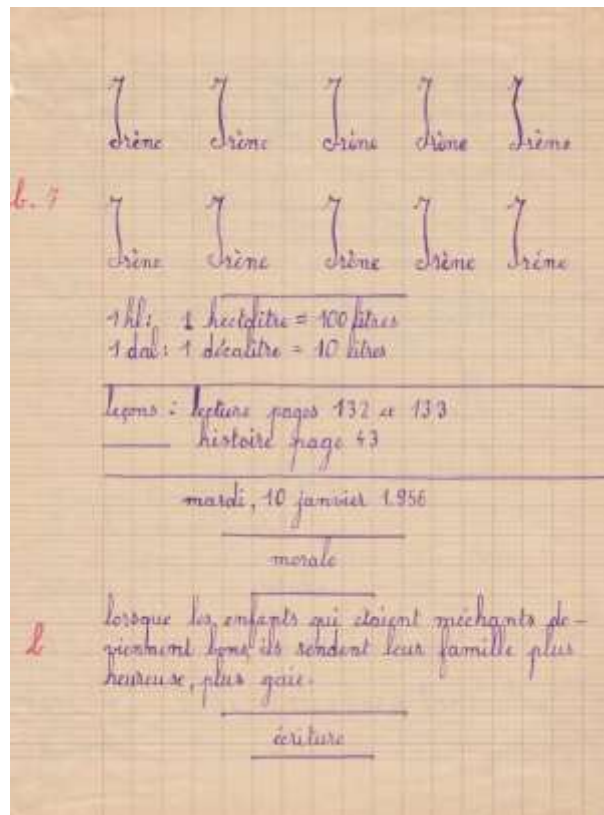 Irène Irène Irène Irène Irène
b. 7
Irène Irène Irène Irène Irène
1 hl : 1 hectolitre = 100 litres
1 dal : 1 décalitre = 10 litres
leçons : lecture pages 132 et 133
histoire page 43
mardi, 10 janvier 1.956
morale
lorsque les enfants qui étaient méchants de-
viennent bons, ils rendent leur famille plus
heureuse, plus gaie.
écriture